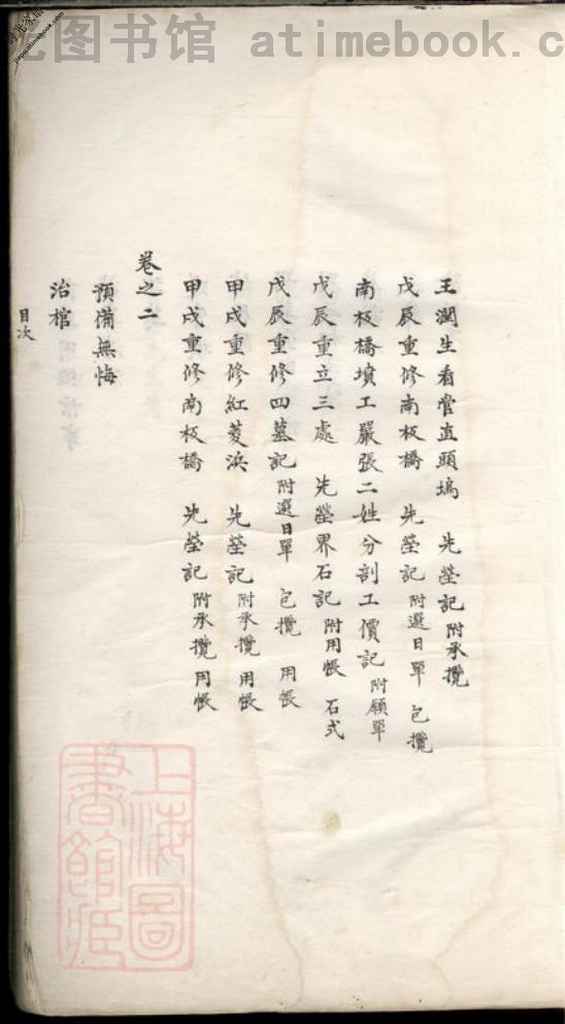 光图书馆 atimebook.c
王潤生看管直頭塢 先塋記附承攬
戊辰重修南板橋 先塋記附選日單 包攬
南板橋墳工嚴張二姓分剖工價記附願單
戊辰重立三處 先塋界石記附用帳 石式
戊辰重修四墓記附選日單 包攬 用帳
甲戌重修紅菱浜 先塋記附承攬 用帳
甲戌重修南板橋 先塋記附承攬 用帳
卷之二
預備無悔
治棺
目次
上海圖
書館臧